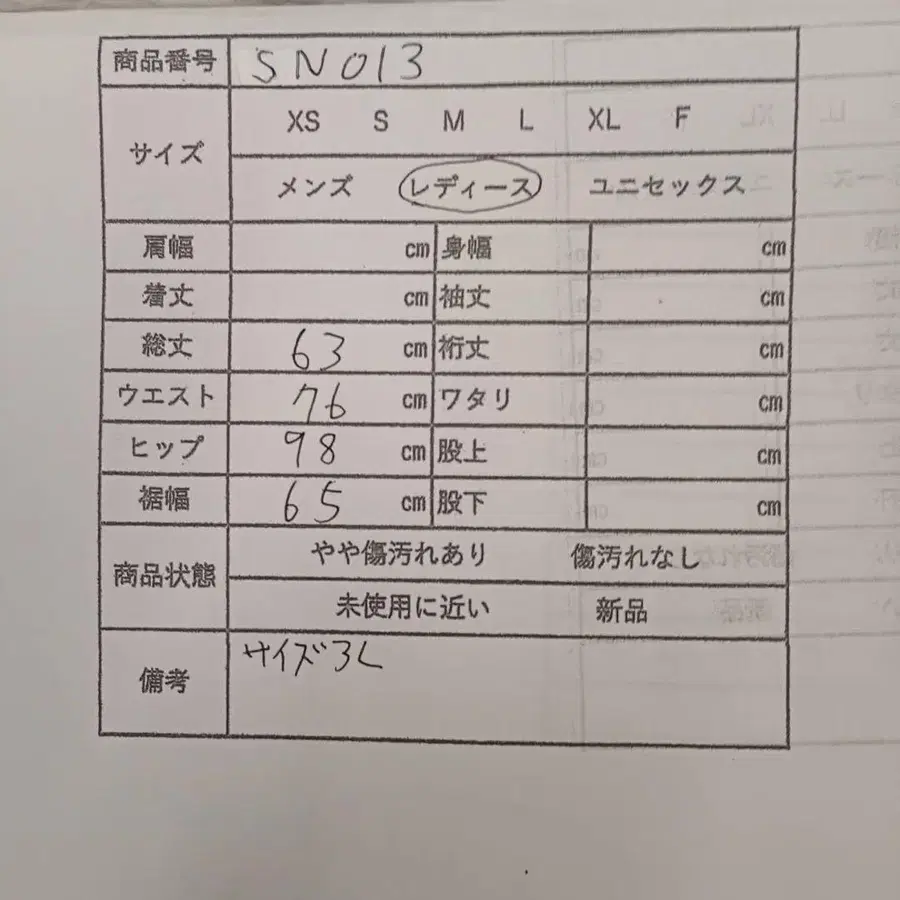 商品番号 SN013
サイズ XS S M L XL F
メンズ レディース ユニセックス
肩幅 cm 身幅 cm
着丈 cm 袖丈 cm
総丈 63 cm 裄丈 cm
ウエスト 76 cm ワタリ cm
ヒップ 98 cm 股上 cm
裾幅 65 cm 股下 cm
商品状態 やや傷汚れあり 傷汚れなし
未使用に近い 新品
備考 サイズ3L